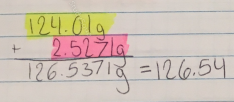 124.01g
+ 2.5271g
126.5371g = 126.54